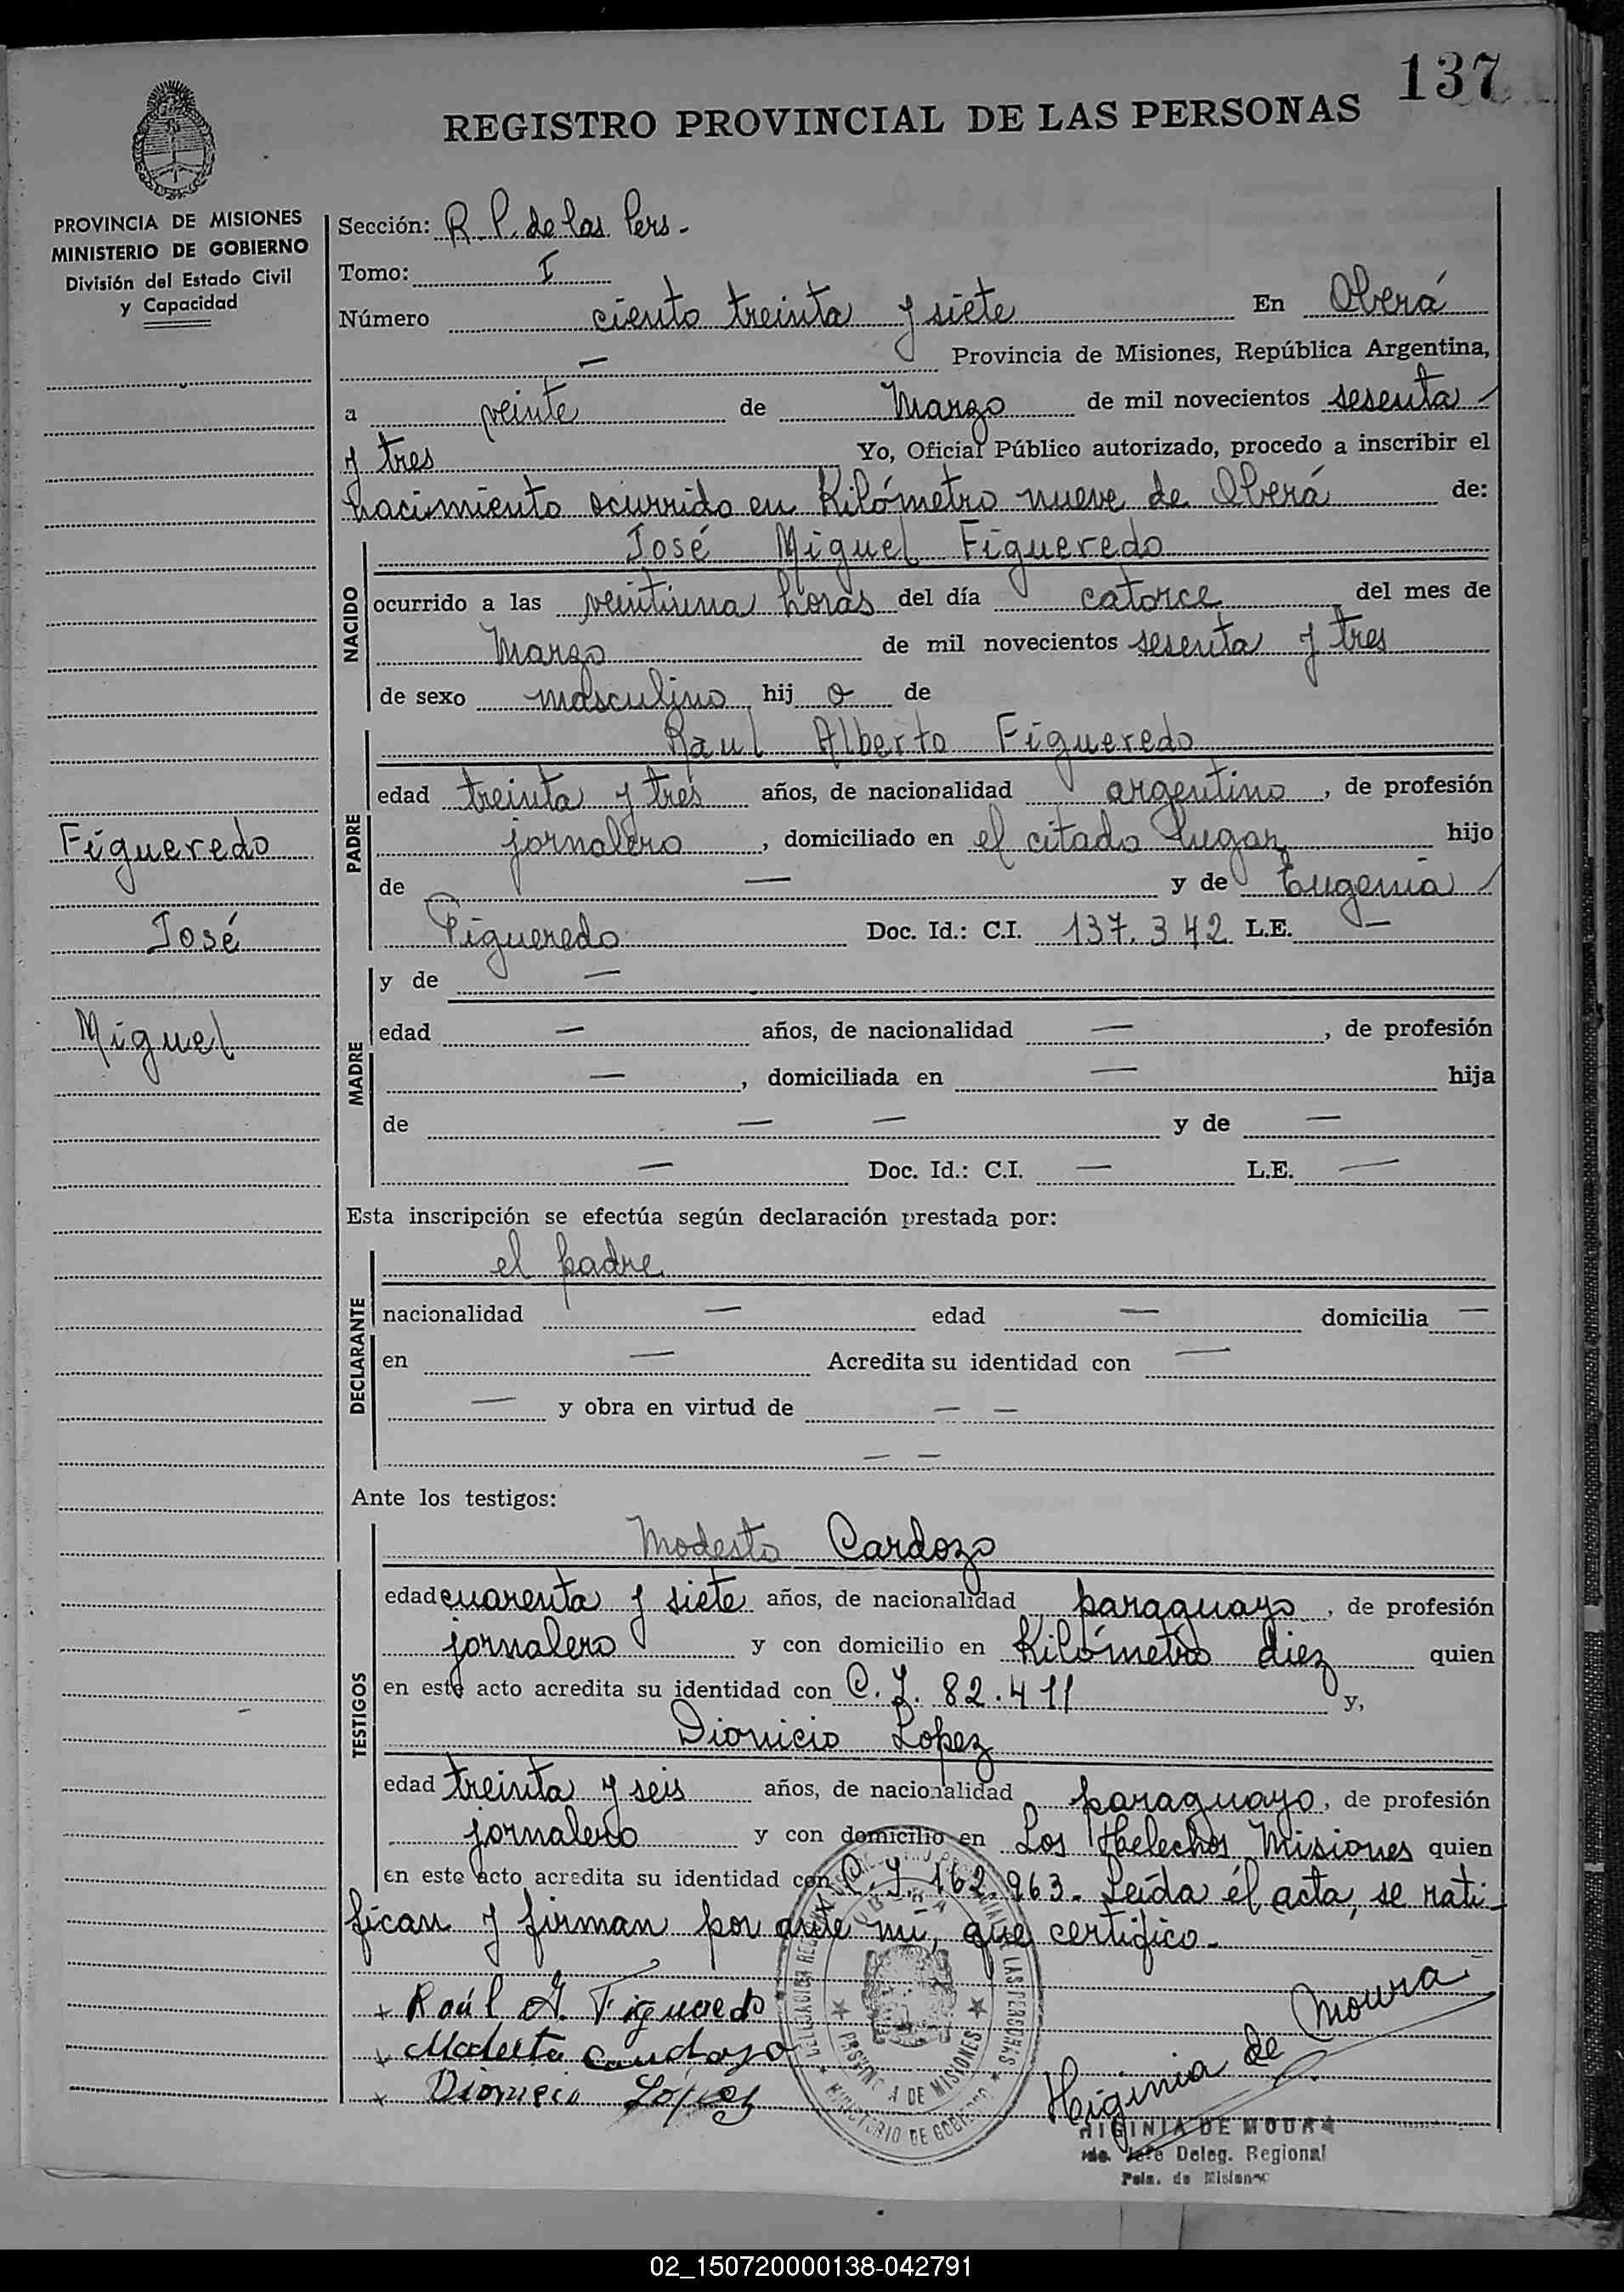 137
REGISTRO PROVINCIAL DE LAS PERSONAS
PROVINCIA DE MISIONES
MINISTERIO DE GOBIERNO
División del Estado Civil
y Capacidad
Sección: R. P. de las Pers.
Tomo: I
Número ciento treinta y siete En Oberá
— Provincia de Misiones, República Argentina,
a veinte de Marzo de mil novecientos sesenta
y tres Yo, Oficial Público autorizado, procedo a inscribir el
nacimiento ocurrido en Kilómetro nueve de Oberá de:
NACIDO
José Miguel Figueredo
ocurrido a las veintiuna horas del día catorce del mes de
Marzo de mil novecientos sesenta y tres
de sexo masculino hij o de
PADRE
Raul Alberto Figueredo
edad treinta y tres años, de nacionalidad argentino, de profesión
jornalero, domiciliado en el citado lugar hijo
de — y de Eugenia
Figueredo Doc. Id.: C.I. 137.342 L.E. —
Figueredo
José
Miguel
MADRE
y de —
edad — años, de nacionalidad —, de profesión
—, domiciliada en — hija
de — — y de —
— Doc. Id.: C.I. — L.E. —
Esta inscripción se efectúa según declaración prestada por:
DECLARANTE
el padre
nacionalidad — edad — domicilia —
en — Acredita su identidad con —
— y obra en virtud de — —
— —
Ante los testigos:
TESTIGOS
Modesto Cardozo
edad cuarenta y siete años, de nacionalidad paraguayo, de profesión
jornalero y con domicilio en Kilómetro diez quien
en este acto acredita su identidad con C.I. 82.411 y,
Dionicio Lopez
edad treinta y seis años, de nacionalidad paraguayo, de profesión
jornalero y con domicilio en Los Helechos Misiones quien
en este acto acredita su identidad con C.I. 162.963. Leída el acta, se rati-
fican y firman por ante mí, que certifico.
Raúl A. Figueredo
Modesto Cardozo
Dionicio López
PROVINCIA DE MISIONES
MINISTERIO DE GOBIERNO
LAS PERSONAS
Higinia de Moura
HIGINIA DE MOURA
Jefe Deleg. Regional
Pcia. de Misiones
02_150720000138-042791